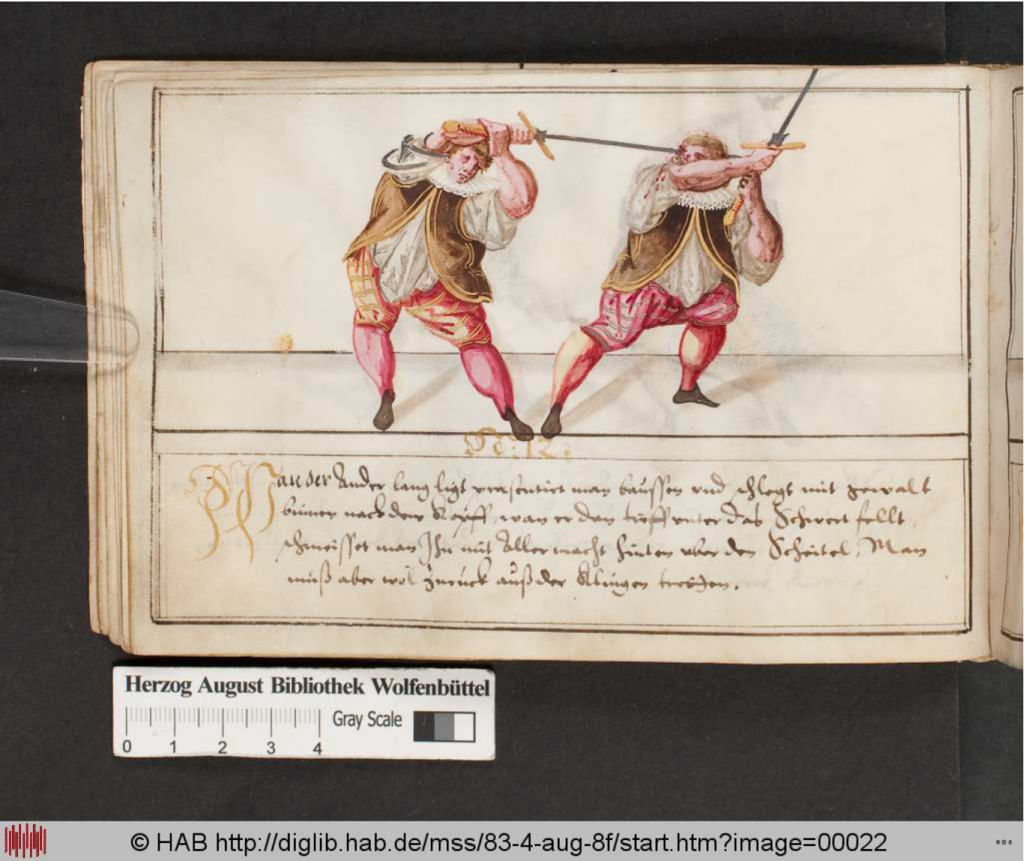 N: 12.
Wan der Ander lang ligt praesentirt man baussen vnd schlegt mit gewalt
binnen nach dem Kopff, wan er dan tieff vnter das Schwert fellt
schmeisset man Ihn mit Aller macht hinten vber den Scheitel, Man
muß aber wol zuruck auß der Klingen tretten.
Herzog August Bibliothek Wolfenbüttel
Gray Scale
0 1 2 3 4
© HAB http://diglib.hab.de/mss/83-4-aug-8f/start.htm?image=00022